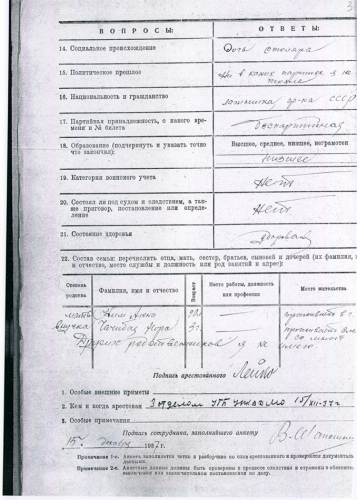 ВОПРОСЫ: ОТВЕТЫ:
14. Социальное происхождение Дочь столяра
15. Политическое прошлое Ни в каких партиях я не
16. Национальность и гражданство латышка гр-ка СССР
17. Партийная принадлежность, с какого времени и № билета беспартийная
18. Образование (подчеркнуть и указать точно что закончил): Высшее, среднее, низшее, неграмотен
низшее
19. Категория воинского учета Нет
20. Состоял ли под судом и следствием, а также приговор, постановление или определение Нет
21. Состояние здоровья здорова
22. Состав семьи: перечислить отца, мать, сестер, братьев, сыновей и дочерей (их фамилия, имя и отчество, место службы и должность или род занятий и адрес):
Степень родства Фамилия, имя и отчество Возраст Место работы, должность или профессия Место жительства
мать Анна
внучка 3 г.
Других родственников я не имею.
Подпись арестованного
1. Особые внешние приметы
2. Кем и когда арестован 3 отделом УГБ 15/XII-37 г
3. Особые замечания
Подпись сотрудника, заполнившего анкету
15 1937 г.
Примечания 1-е. Анкета заполняется четко и разборчиво со слов арестованного и проверяется документальными данными.
Примечание 2-е. Анкетные данные должны быть проверены в процессе следствия и отражены в обвинительном заключении или заключительном постановлении по делу.